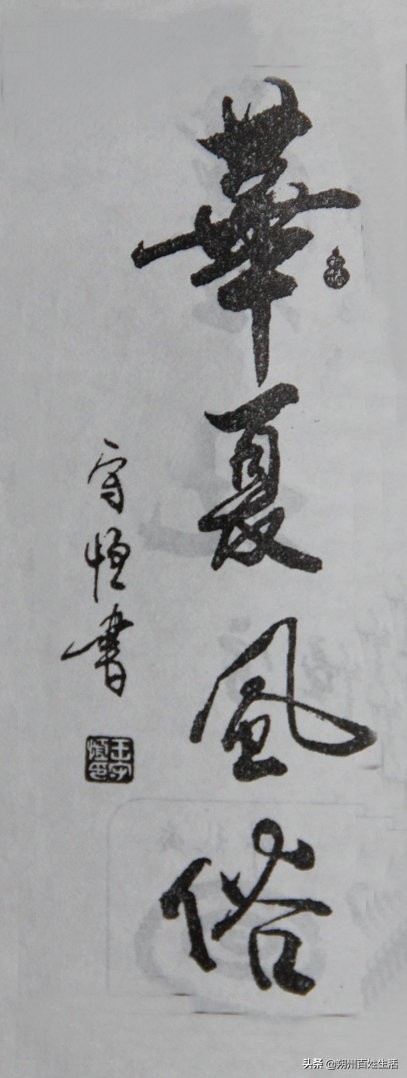 華夏風俗
守恆書
王守恆印
头条 @朔州百姓生活